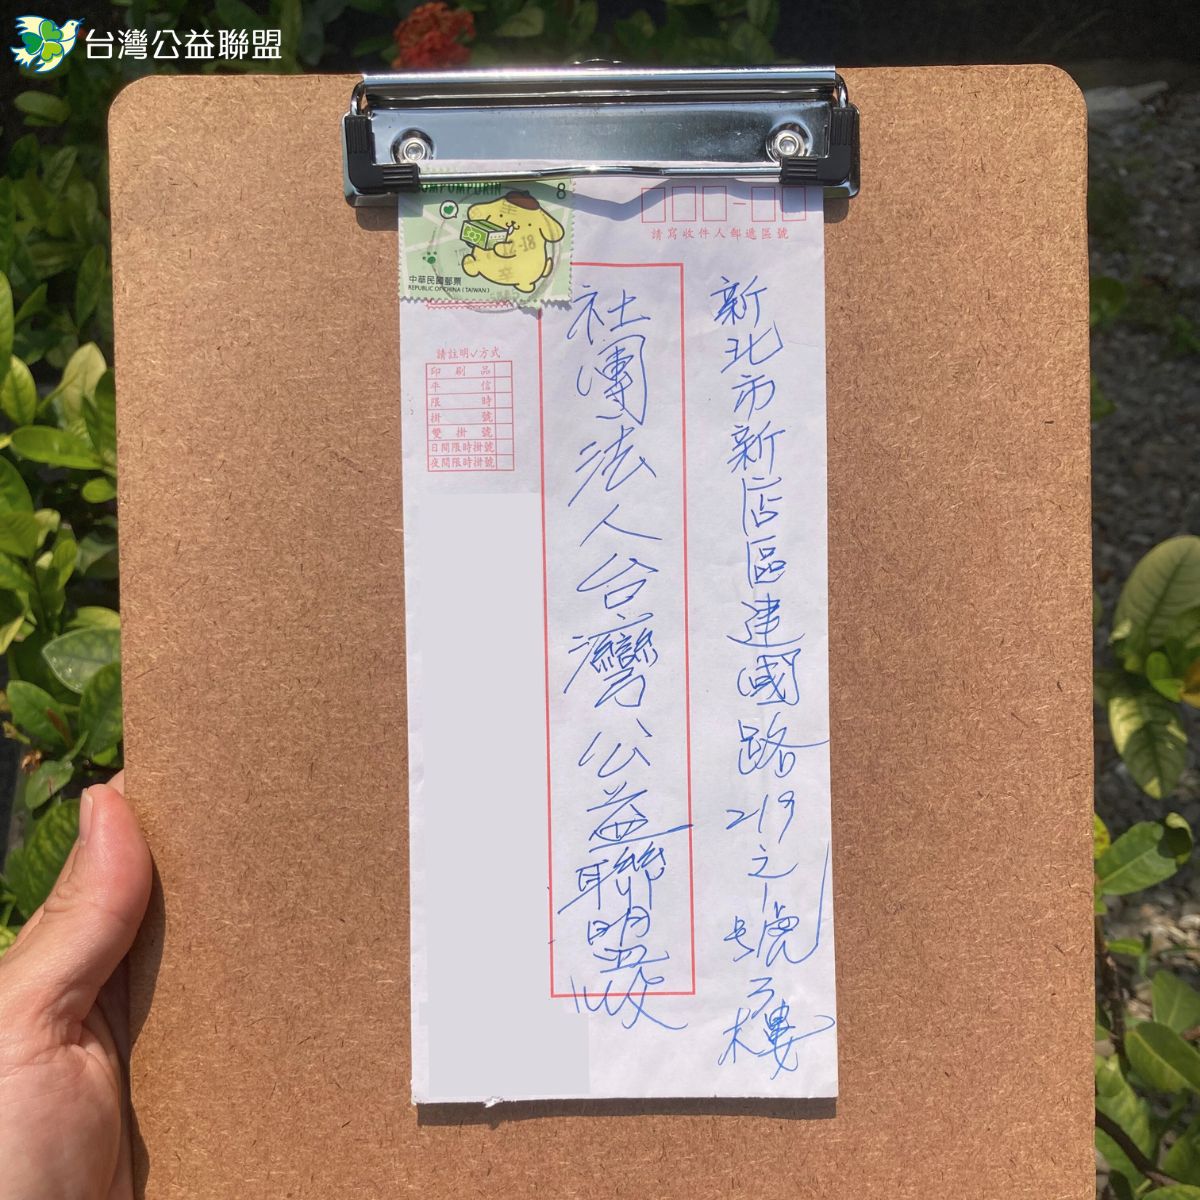 台灣公益聯盟
POMPOMPURIN 8
中華民國郵票
REPUBLIC OF CHINA (TAIWAN)
請寫收件人郵遞區號
新北市新店區建國路219之1號3樓
社團法人台灣公益聯盟收
請註明✓方式
印刷品
平信
限時
掛號
雙掛號
日間限時掛號
夜間限時掛號